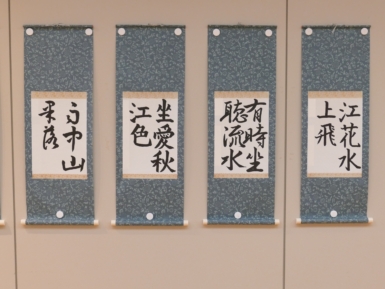 江花水
上飛
有時坐
聽流水
坐愛秋
江色
雨中山
果落